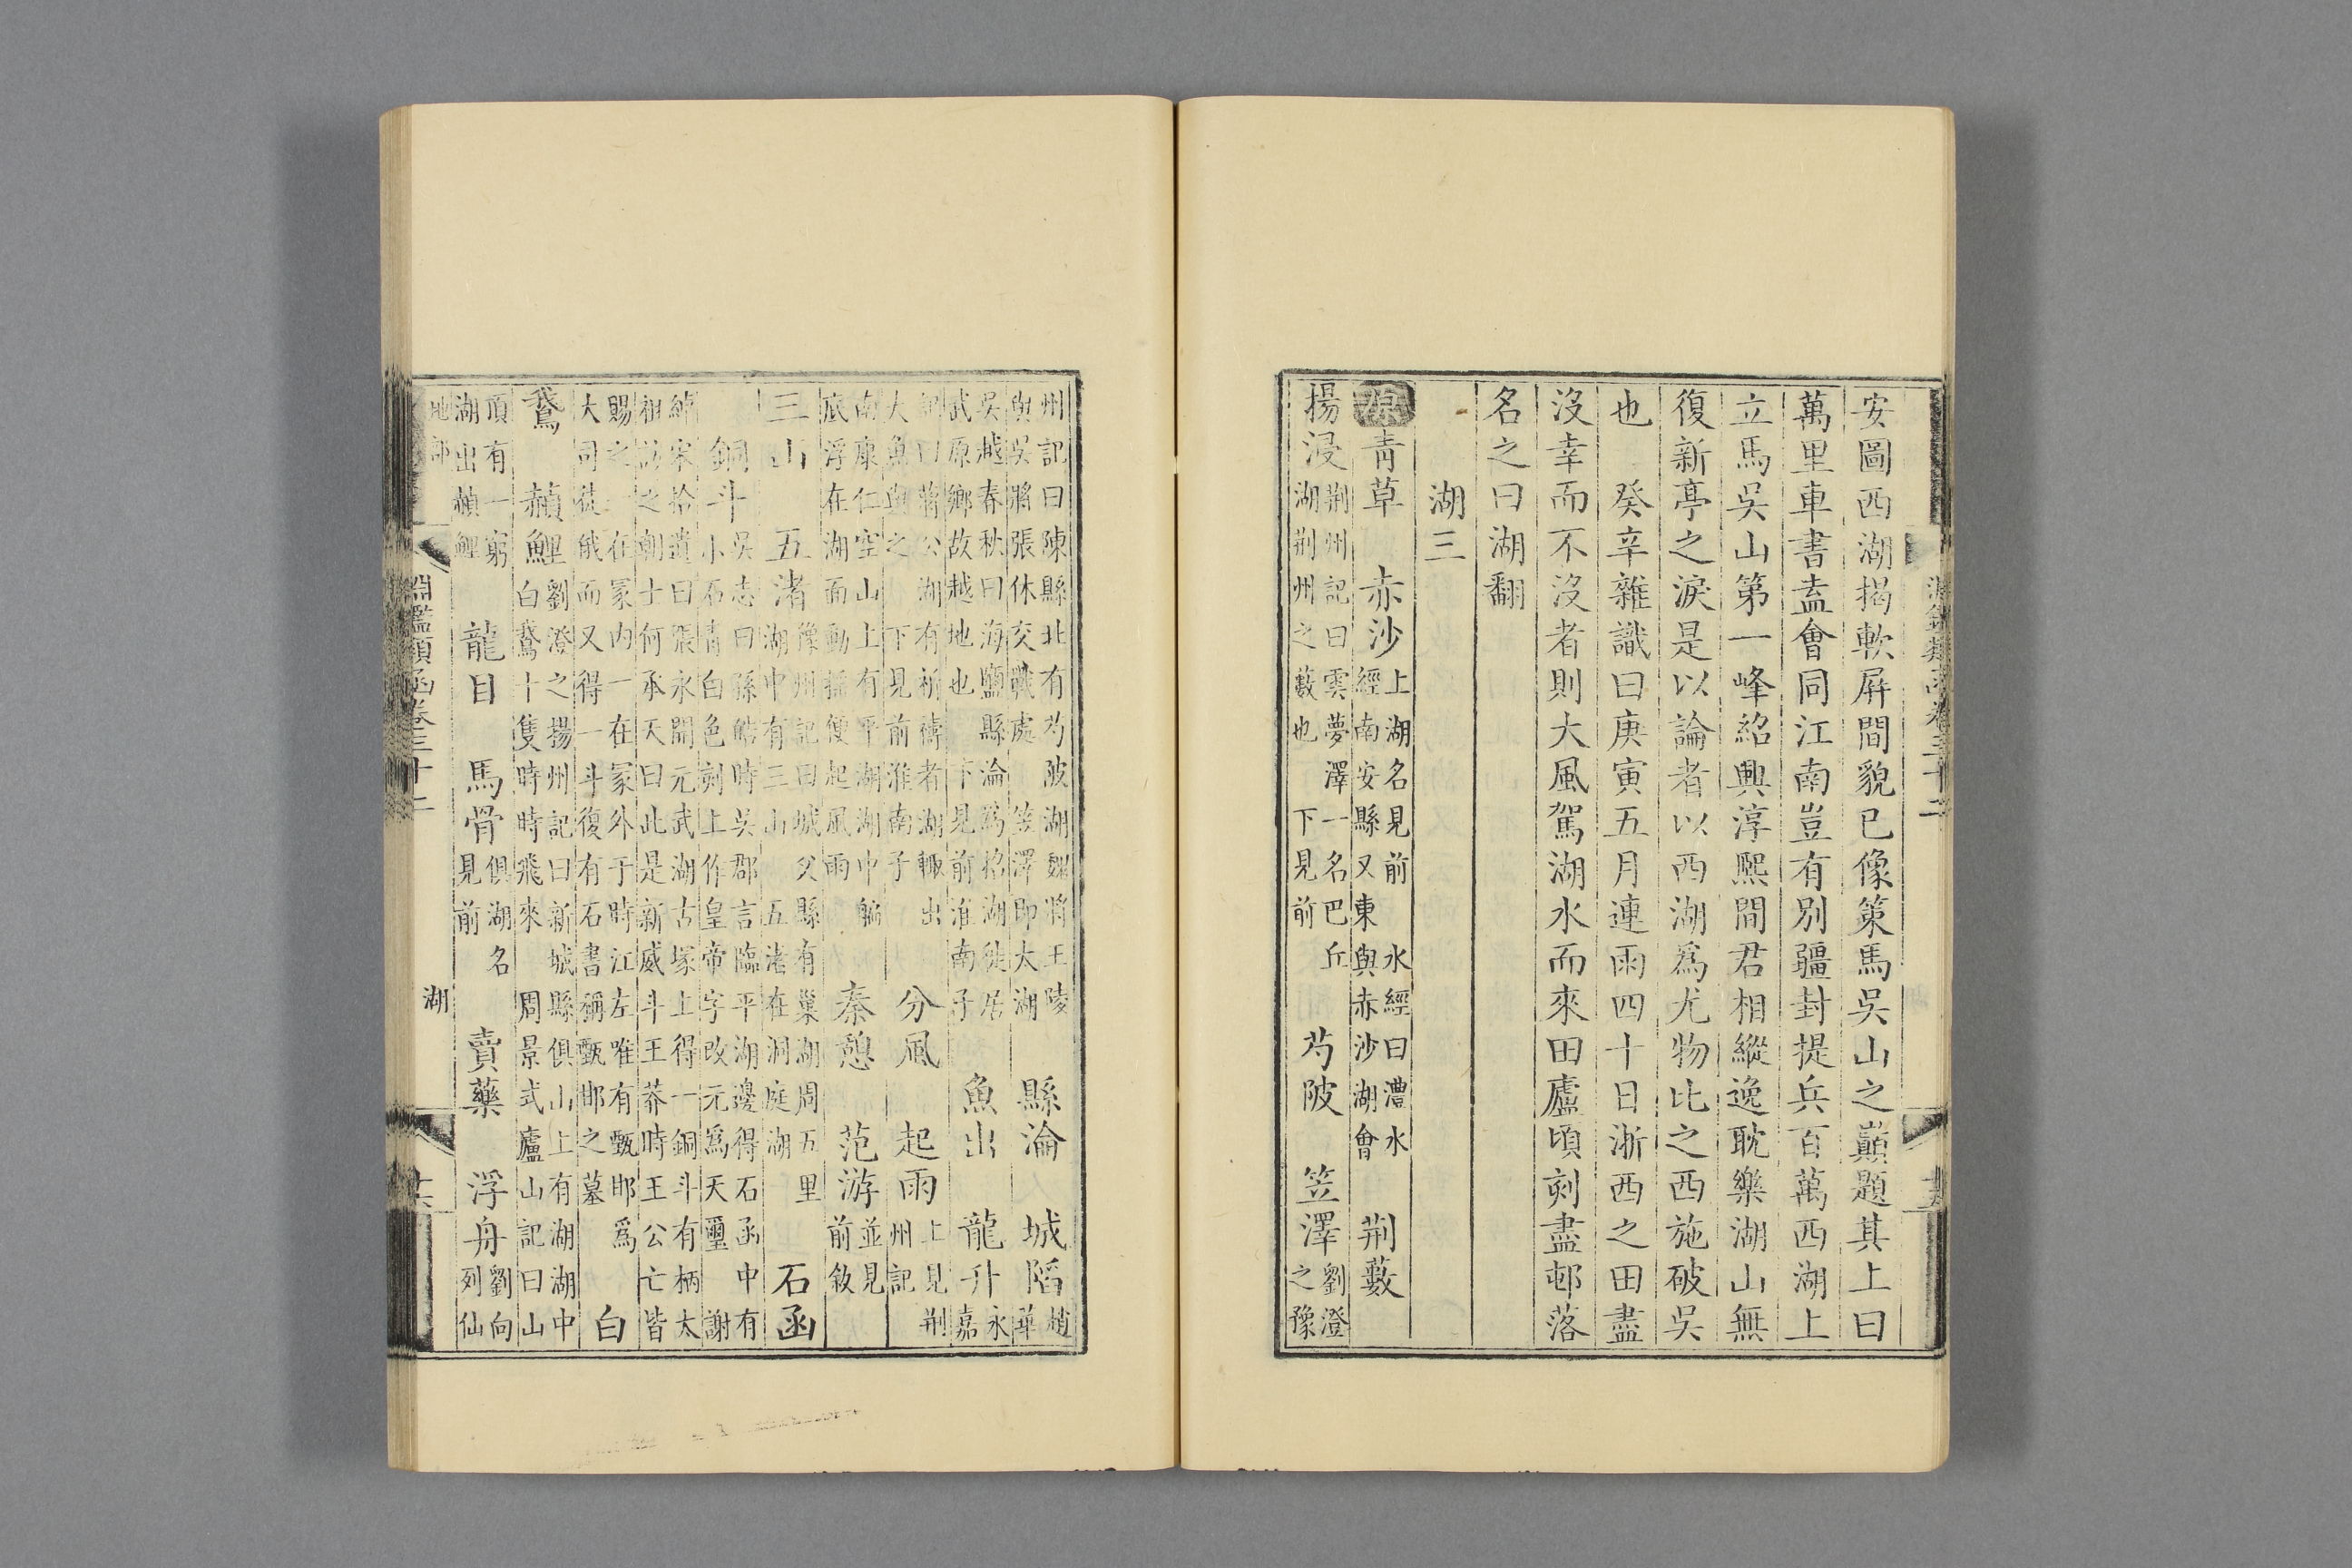 安圖西湖揭軟屏間貌已像策馬吳山之巔題其上曰
萬里車書盍會同江南豈有別疆封提兵百萬西湖上
立馬吳山第一峰紹興淳熙間君相縱逸耽樂湖山無
復新亭之淚是以論者以西湖爲尤物比之西施破吳
也 癸辛雜識曰庚寅五月連雨四十日浙西之田盡
沒幸而不沒者則大風駕湖水而來田廬頃刻盡邨落
名之曰湖翻
湖三
原 青草 赤沙 上湖名見前 水經曰澧水
經南安縣又東與赤沙湖會 荆藪
揚浸 荆州記曰雲夢澤一名巴丘
湖荆州之藪也 下見前 芍陂 笠澤 劉澄
之豫
州記曰陳縣北有芍陂湖魏將王陵
與吳將張休交戰處 笠澤即大湖 縣淪 城陷 趙
華
吳越春秋曰海鹽縣淪爲招湖徙居
武原鄉故越地也 下見前淮南子 魚出 龍升 永
嘉
記曰蔣公湖有祈禱者湖輒出
大魚與之 下見前淮南子 分風 起雨 上見荆
州記
南康仁空山上有平湖湖中艑
底浮在湖面動搖便起風雨 秦憩 范游 並見
前敘
三山 五渚 豫州記曰城父縣有巢湖周五里
湖中有三山 五渚在洞庭湖 石函
銅斗 吳志曰孫皓時吳郡言臨平湖邊得石函中有
小石青白色刻上作皇帝字改元爲天璽 謝
綽宋拾遺曰張永開元武湖古塚上得一銅斗有柄太
祖訪之朝士何承天曰此是新威斗王莽時王公亡皆
賜之一在冢內一在冢外于時江左唯有甄邯爲
大司徒俄而又得一斗復有石書稱甄邯之墓 白
鵞 赬鯉 劉澄之揚州記曰新城縣俱山上有湖湖中
白鵞十隻時時飛來 周景式廬山記曰山
頂有一窮
湖出赬鯉 龍目 馬骨 俱湖名
見前 賣藥 浮舟 劉向
列仙
地部 淵鑑類函卷三十二 湖